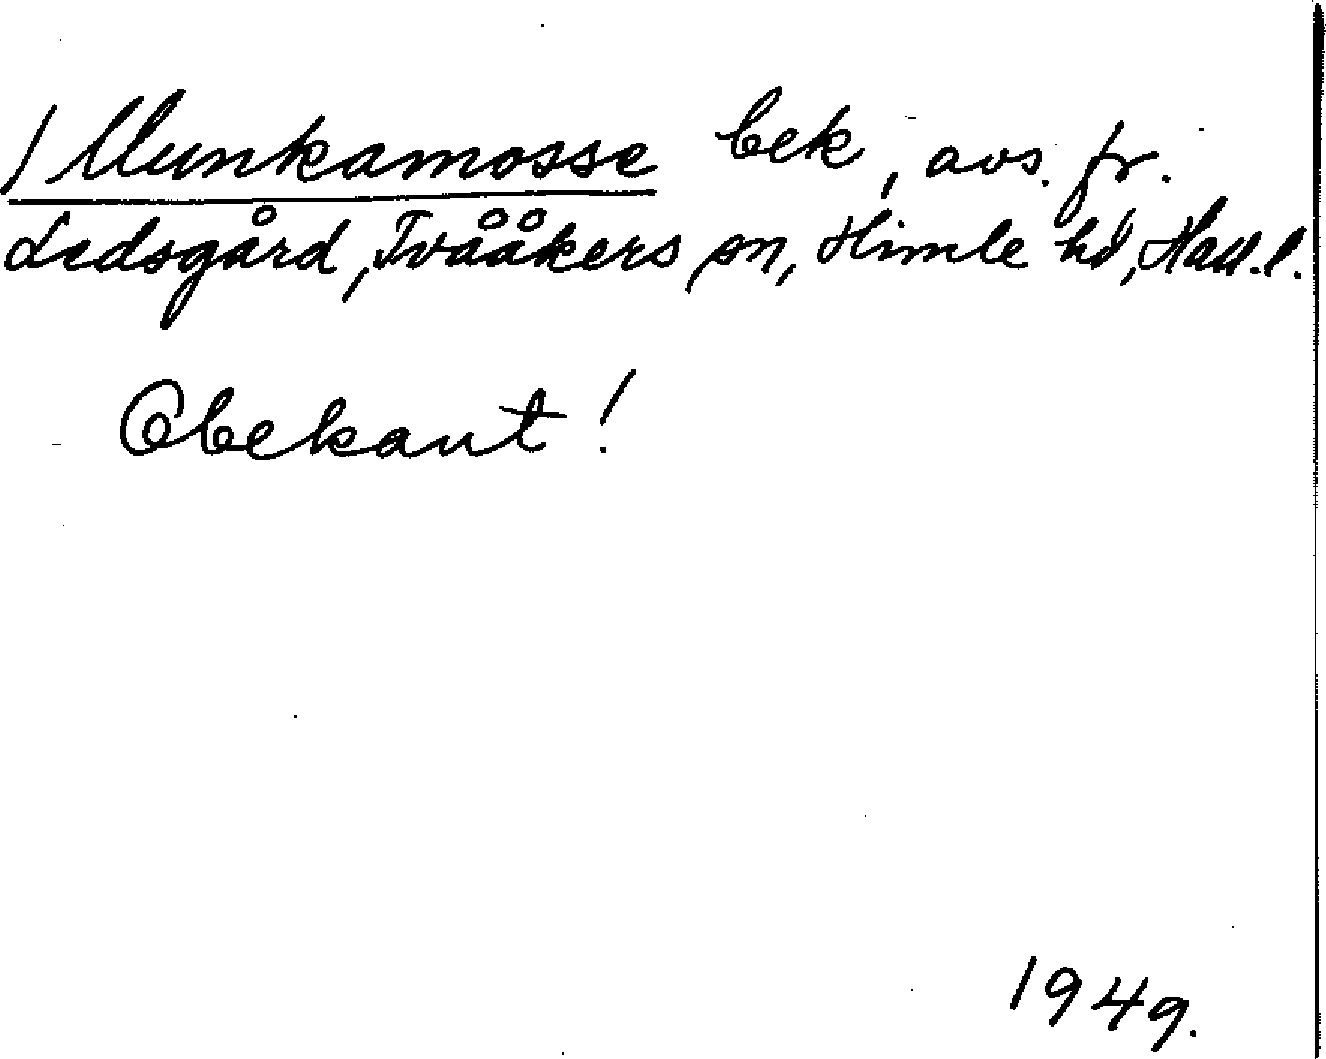 / Munkamosse bek, avs. fr.
Ledsgård, Tvååkers sn, Himle hd, Hall. l.
Obekant!
1949.